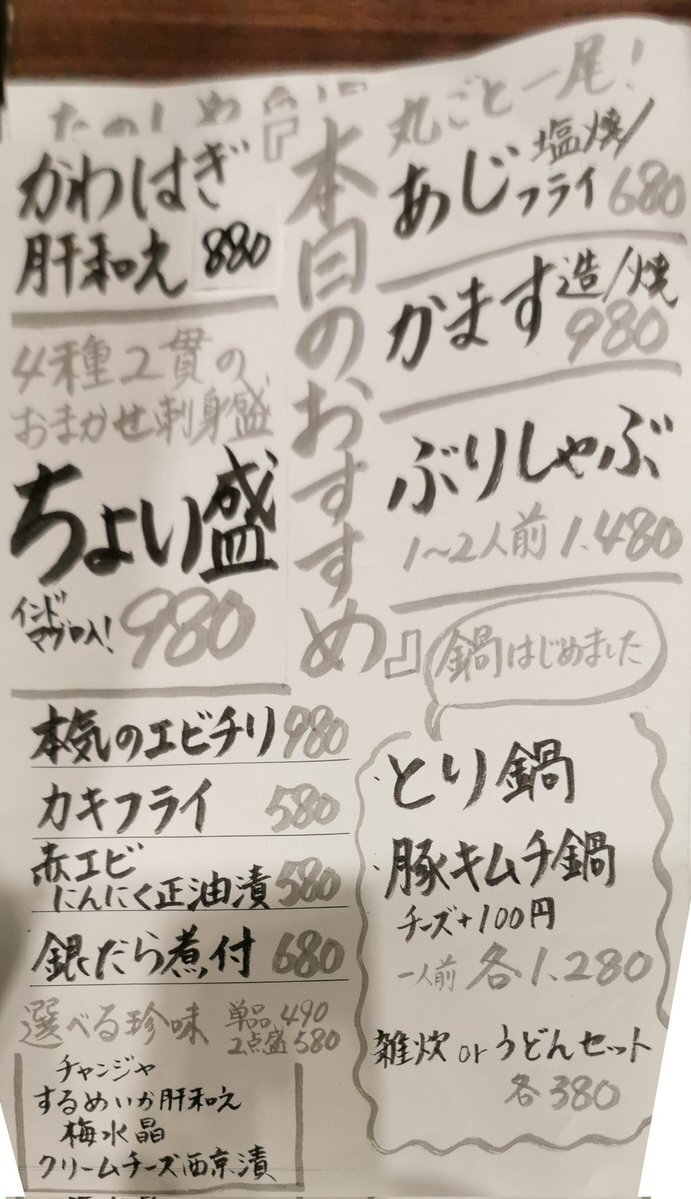 『本日のおすすめ』
丸ごと一尾!
あじ 塩焼/フライ 680
かます 造/焼
980
ぶりしゃぶ
1~2人前 1.480
鍋はじめました
とり鍋
豚キムチ鍋
チーズ+100円
一人前 各1.280
雑炊orうどんセット
各380
かわはぎ
肝和え 880
4種2貫の
おまかせ刺身盛
ちょい盛
インド
マグロ入! 980
本気のエビチリ 980
カキフライ 580
赤エビ
にんにく正油漬 580
銀だら煮付 680
選べる珍味 単品490
2点盛580
チャンジャ
するめいか肝和え
梅水晶
クリームチーズ西京漬